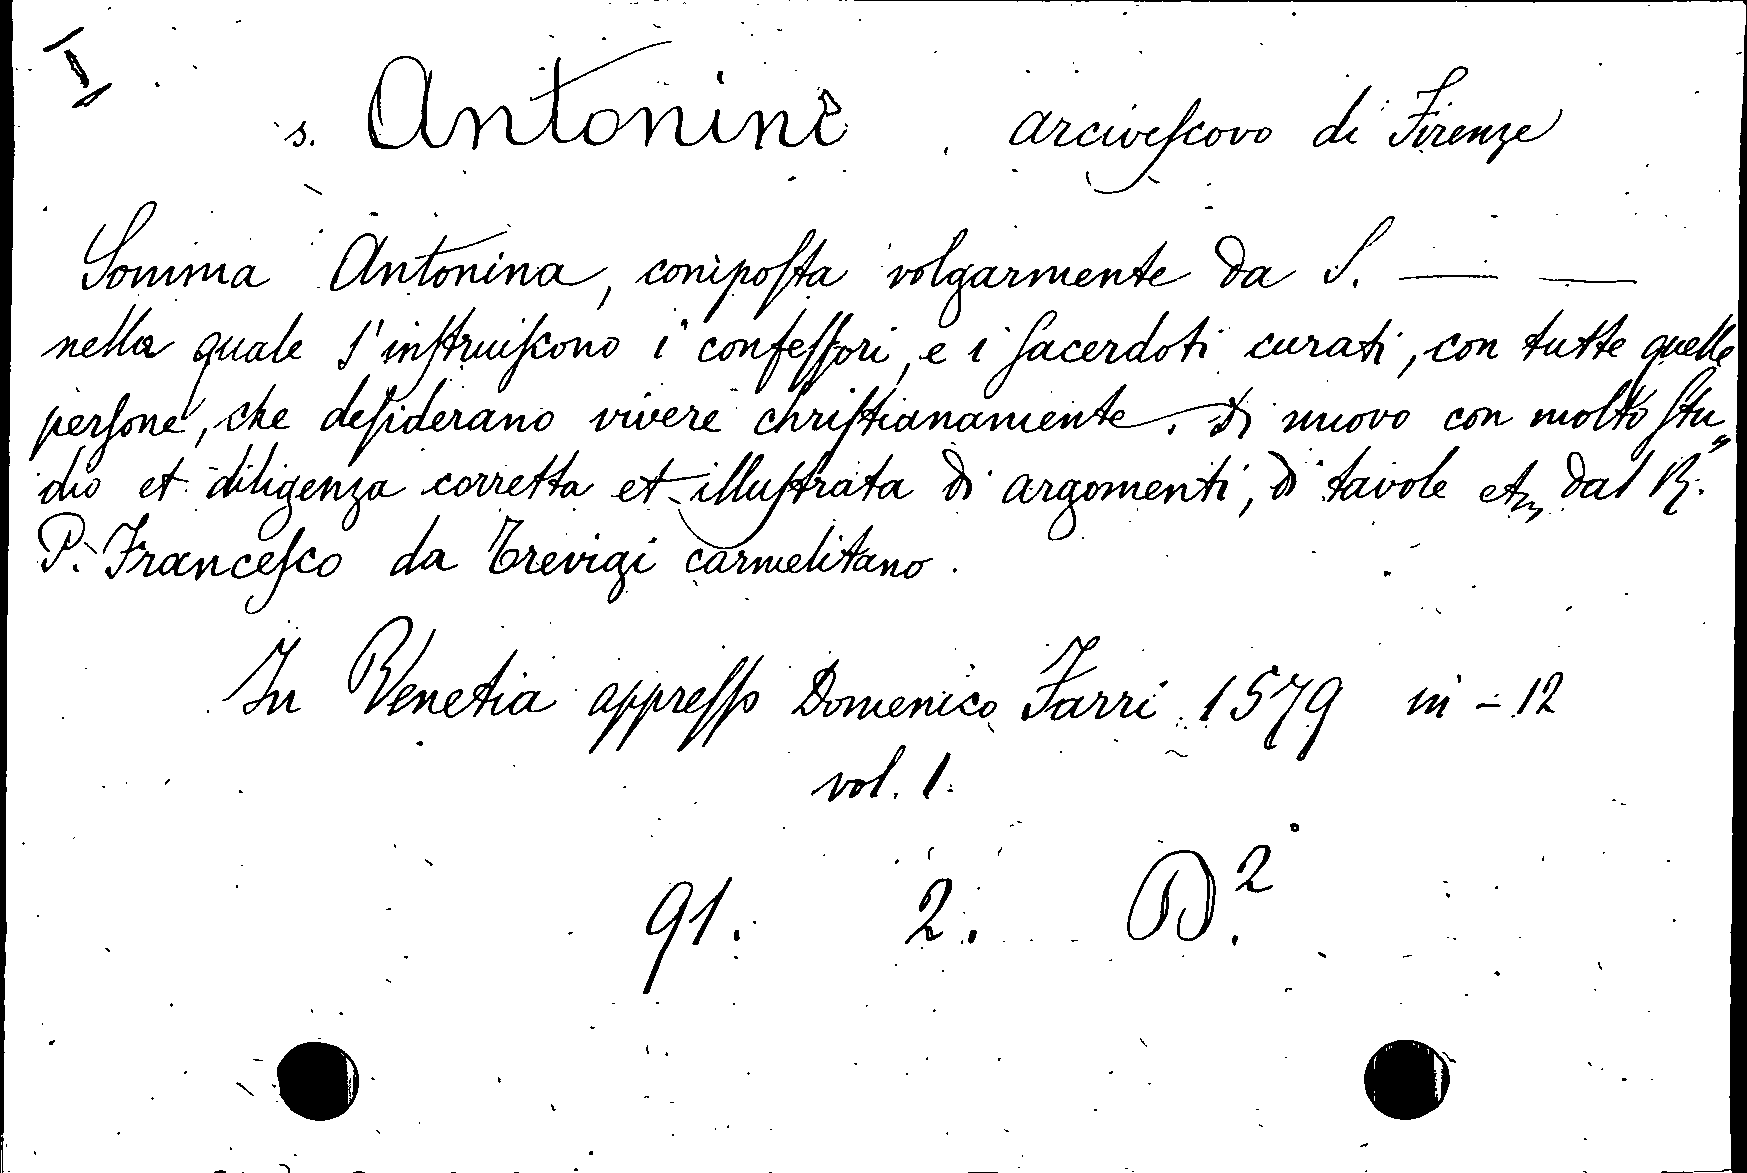 I
s. Antonino arcivescovo di Firenze
Somma Antonina, composta volgarmente da S. — —
nella quale s'instruiscono i confessori, e i sacerdoti curati, con tutte quelle
persone, che desiderano vivere christianamente. Di nuovo con molto stu„
dio et diligenza corretta et illustrata di argomenti, di tavole etc. dal R.
P. Francesco da Trevigi carmelitano.
In Venetia appresso Domenico Farri 1579 in - 12
vol. 1.
91. 2. D².